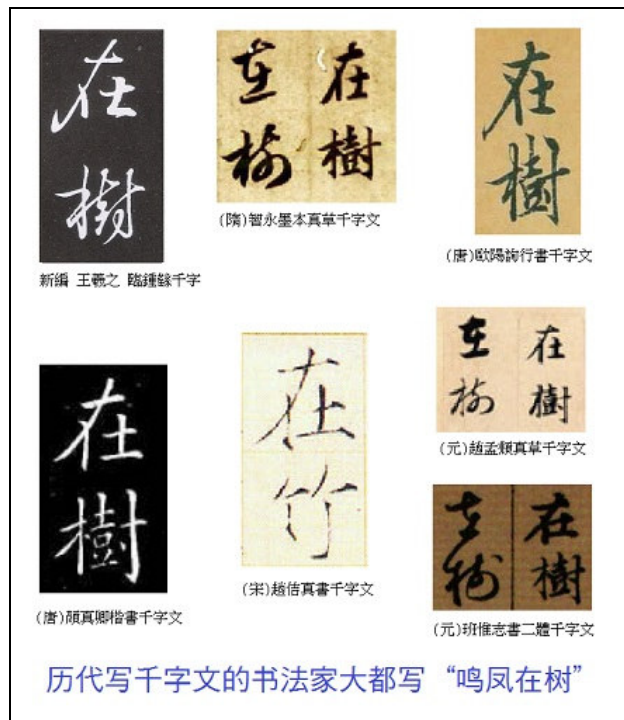 在
樹
在在
樹樹
(隋)智永墨本真草千字文
在
樹
(唐)歐陽詢行書千字文
新編 王羲之 臨鍾繇千字
在
樹
(唐)顏真卿楷書千字文
在
竹
(宋)趙佶真書千字文
在在
樹樹
(元)趙孟頫真草千字文
在在
樹樹
(元)班惟志書二體千字文
历代写千字文的书法家大都写“鸣凤在树”